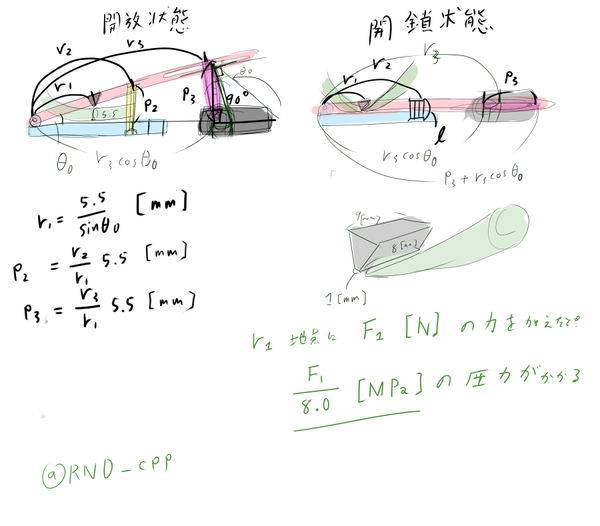 開放状態
r₂
r₃
r₁
5.5
P₂
P₃
90°
θ₀
θ₀
r₃cosθ₀
開鎖状態
r₃
r₁
r₂
P₃
l
r₃cosθ₀
P₃ + r₃cosθ₀
r₁ = 5.5 / sinθ₀ [mm]
P₂ = r₂ / r₁ 5.5 [mm]
P₃ = r₃ / r₁ 5.5 [mm]
8[mm]
1[mm]
r₁ 地点に F₁ [N] の力を加えたとき
F₁ / 8.0 [MPa] の圧力がかかる
@RND_CPP